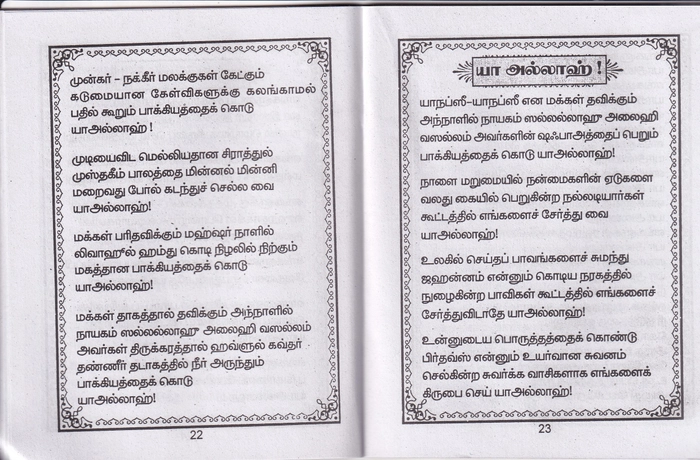 முன்கர் – நக்கீர் மலக்குகள் கேட்கும்
கடுமையான கேள்விகளுக்கு கலங்காமல்
பதில் கூறும் பாக்கியத்தைக் கொடு
யாஅல்லாஹ் !
முடியைவிட மெல்லியதான சிராத்துல்
முஸ்தகீம் பாலத்தை மின்னல் மின்னி
மறைவது போல் கடந்துச் செல்ல வை
யாஅல்லாஹ்!
மக்கள் பரிதவிக்கும் மஹ்ஷர் நாளில்
லிவாஹுல் ஹம்து கொடி நிழலில் நிற்கும்
மகத்தான பாக்கியத்தைக் கொடு
யாஅல்லாஹ்!
மக்கள் தாகத்தால் தவிக்கும் அந்நாளில்
நாயகம் ஸல்லல்லாஹு அலைஹி வஸல்லம்
அவர்கள் திருக்கரத்தால் ஹவ்ளுல் கவ்தர்
தண்ணீர் தடாகத்தில் நீர் அருந்தும்
பாக்கியத்தைக் கொடு
யாஅல்லாஹ்!
22
யா அல்லாஹ் !
யாநப்ஸீ-யாநப்ஸீ என மக்கள் தவிக்கும்
அந்நாளில் நாயகம் ஸல்லல்லாஹு அலைஹி
வஸல்லம் அவர்களின் ஷஃபாஅத்தைப் பெறும்
பாக்கியத்தைக் கொடு யாஅல்லாஹ்!
நாளை மறுமையில் நன்மைகளின் ஏடுகளை
வலது கையில் பெறுகின்ற நல்லடியார்கள்
கூட்டத்தில் எங்களைச் சேர்த்து வை
யாஅல்லாஹ்!
உலகில் செய்தப் பாவங்களைச் சுமந்து
ஜஹன்னம் என்னும் கொடிய நரகத்தில்
நுழைகின்ற பாவிகள் கூட்டத்தில் எங்களைச்
சேர்த்துவிடாதே யாஅல்லாஹ்!
உன்னுடைய பொருத்தத்தைக் கொண்டு
பிர்தவ்ஸ் என்னும் உயர்வான சுவனம்
செல்கின்ற சுவர்க்க வாசிகளாக எங்களைக்
கிருபை செய் யாஅல்லாஹ்!
23